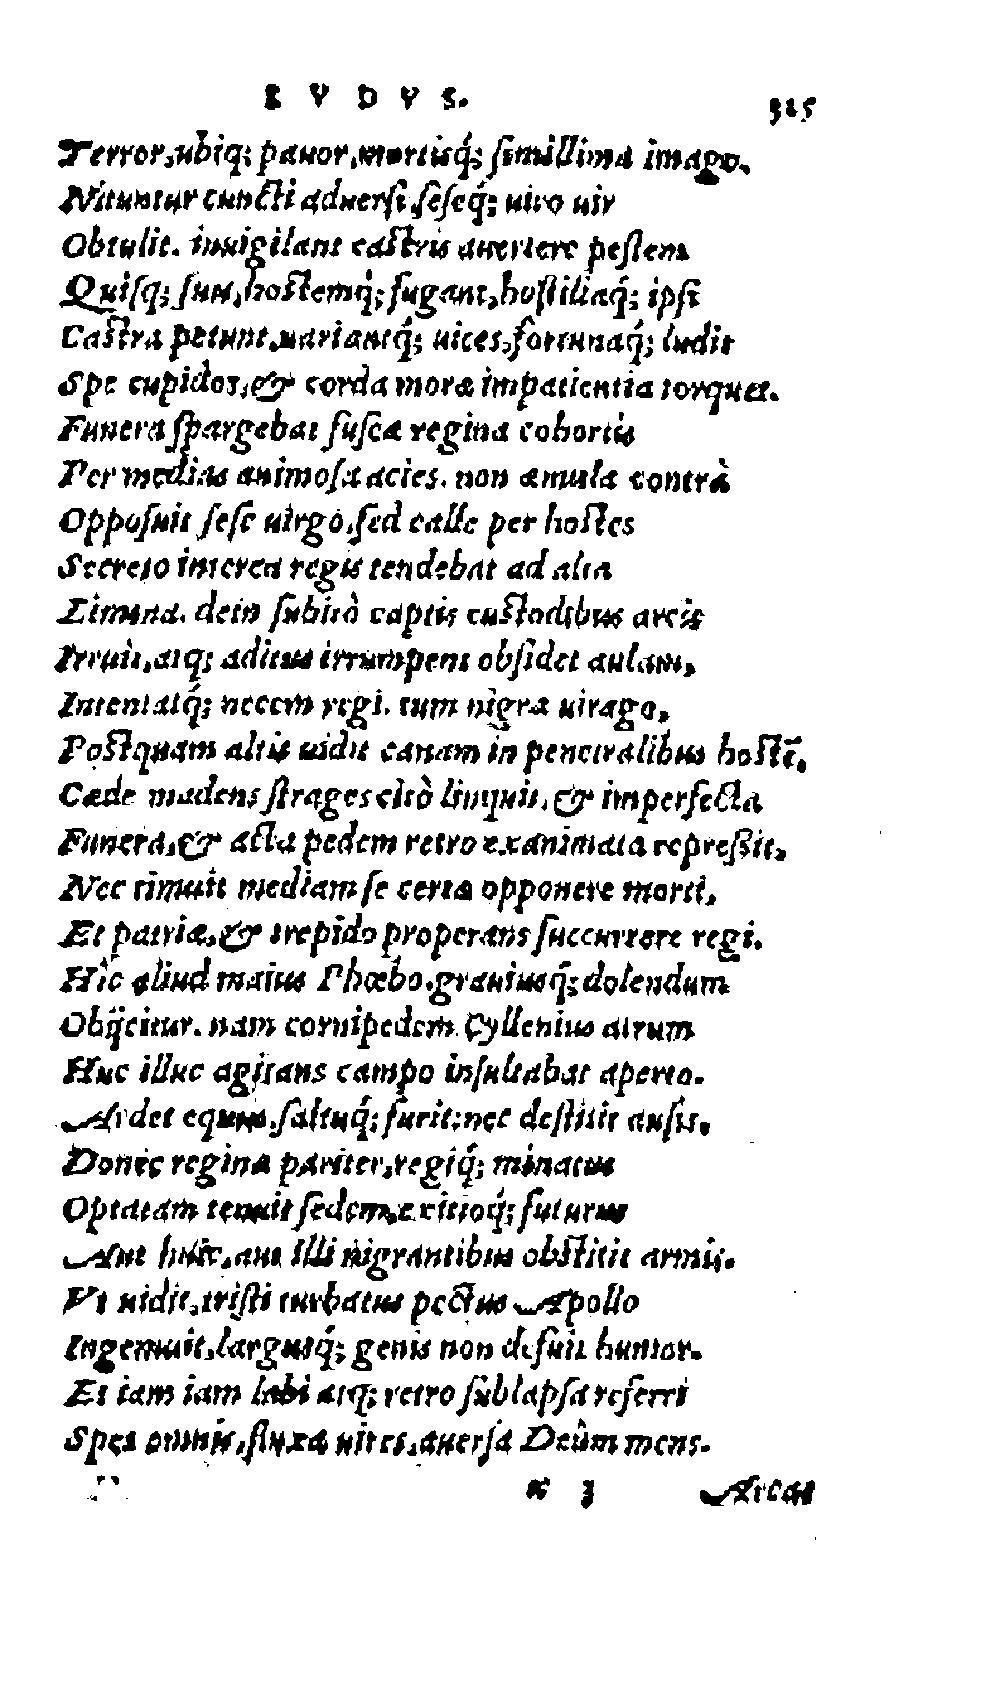 LVDVS. 315
Terror, ubiq; pauor, mortisq́; simillima imago.
Nituntur cuncti aduersi, seseq́; uiro uir
Obtulit. inuigilant castris auertere pestem
Quisq; suis, hostemq́; fugant, hostiliaq́; ipsi
Castra petunt, uariantq́; uices, fortunaq́; ludit
Spe cupidos, & corda moræ impatientia torquet.
Funera spargebat fuscæ regina cohortis
Per medias animosa acies. non æmula contrà
Opposuit sese uirgo, sed calle per hostes
Secreto interea regis tendebat ad alta
Limina. dein subitò captis custodibus arcis
Irruit, atq; aditus irrumpens obsidet aulam,
Intentatq́; necem regi. tum nigra uirago,
Postquam altis uidit canam in penetralibus hostē,
Cæde madens strages citò linquit, & imperfecta
Funera, & acta pedem retro exanimata repressit,
Nec timuit mediam se certæ opponere morti,
Et patriæ, & trepido properans succurrere regi.
Hîc aliud maius Phœbo, grauiusq́; dolendum
Obijcitur. nam cornipedem Cyllenius atrum
Huc illuc agitans campo insultabat aperto.
Ardet equus, saltuq́; furit: nec destitit ausis,
Donec regina pariter, regiq́; minatus
Optatam tenuit sedem, exitioq́; futurus
Aut huic, aut illi nigrantibus obstitit armis.
Vt uidit, tristi turbatus pectus Apollo
Ingemuit, largusq́; genis non defuit humor.
Et iam iam labi atq; retro sublapsa referri
Spes omnis, fluxæ uires, auersa Deûm mens.
x 3 Arcas